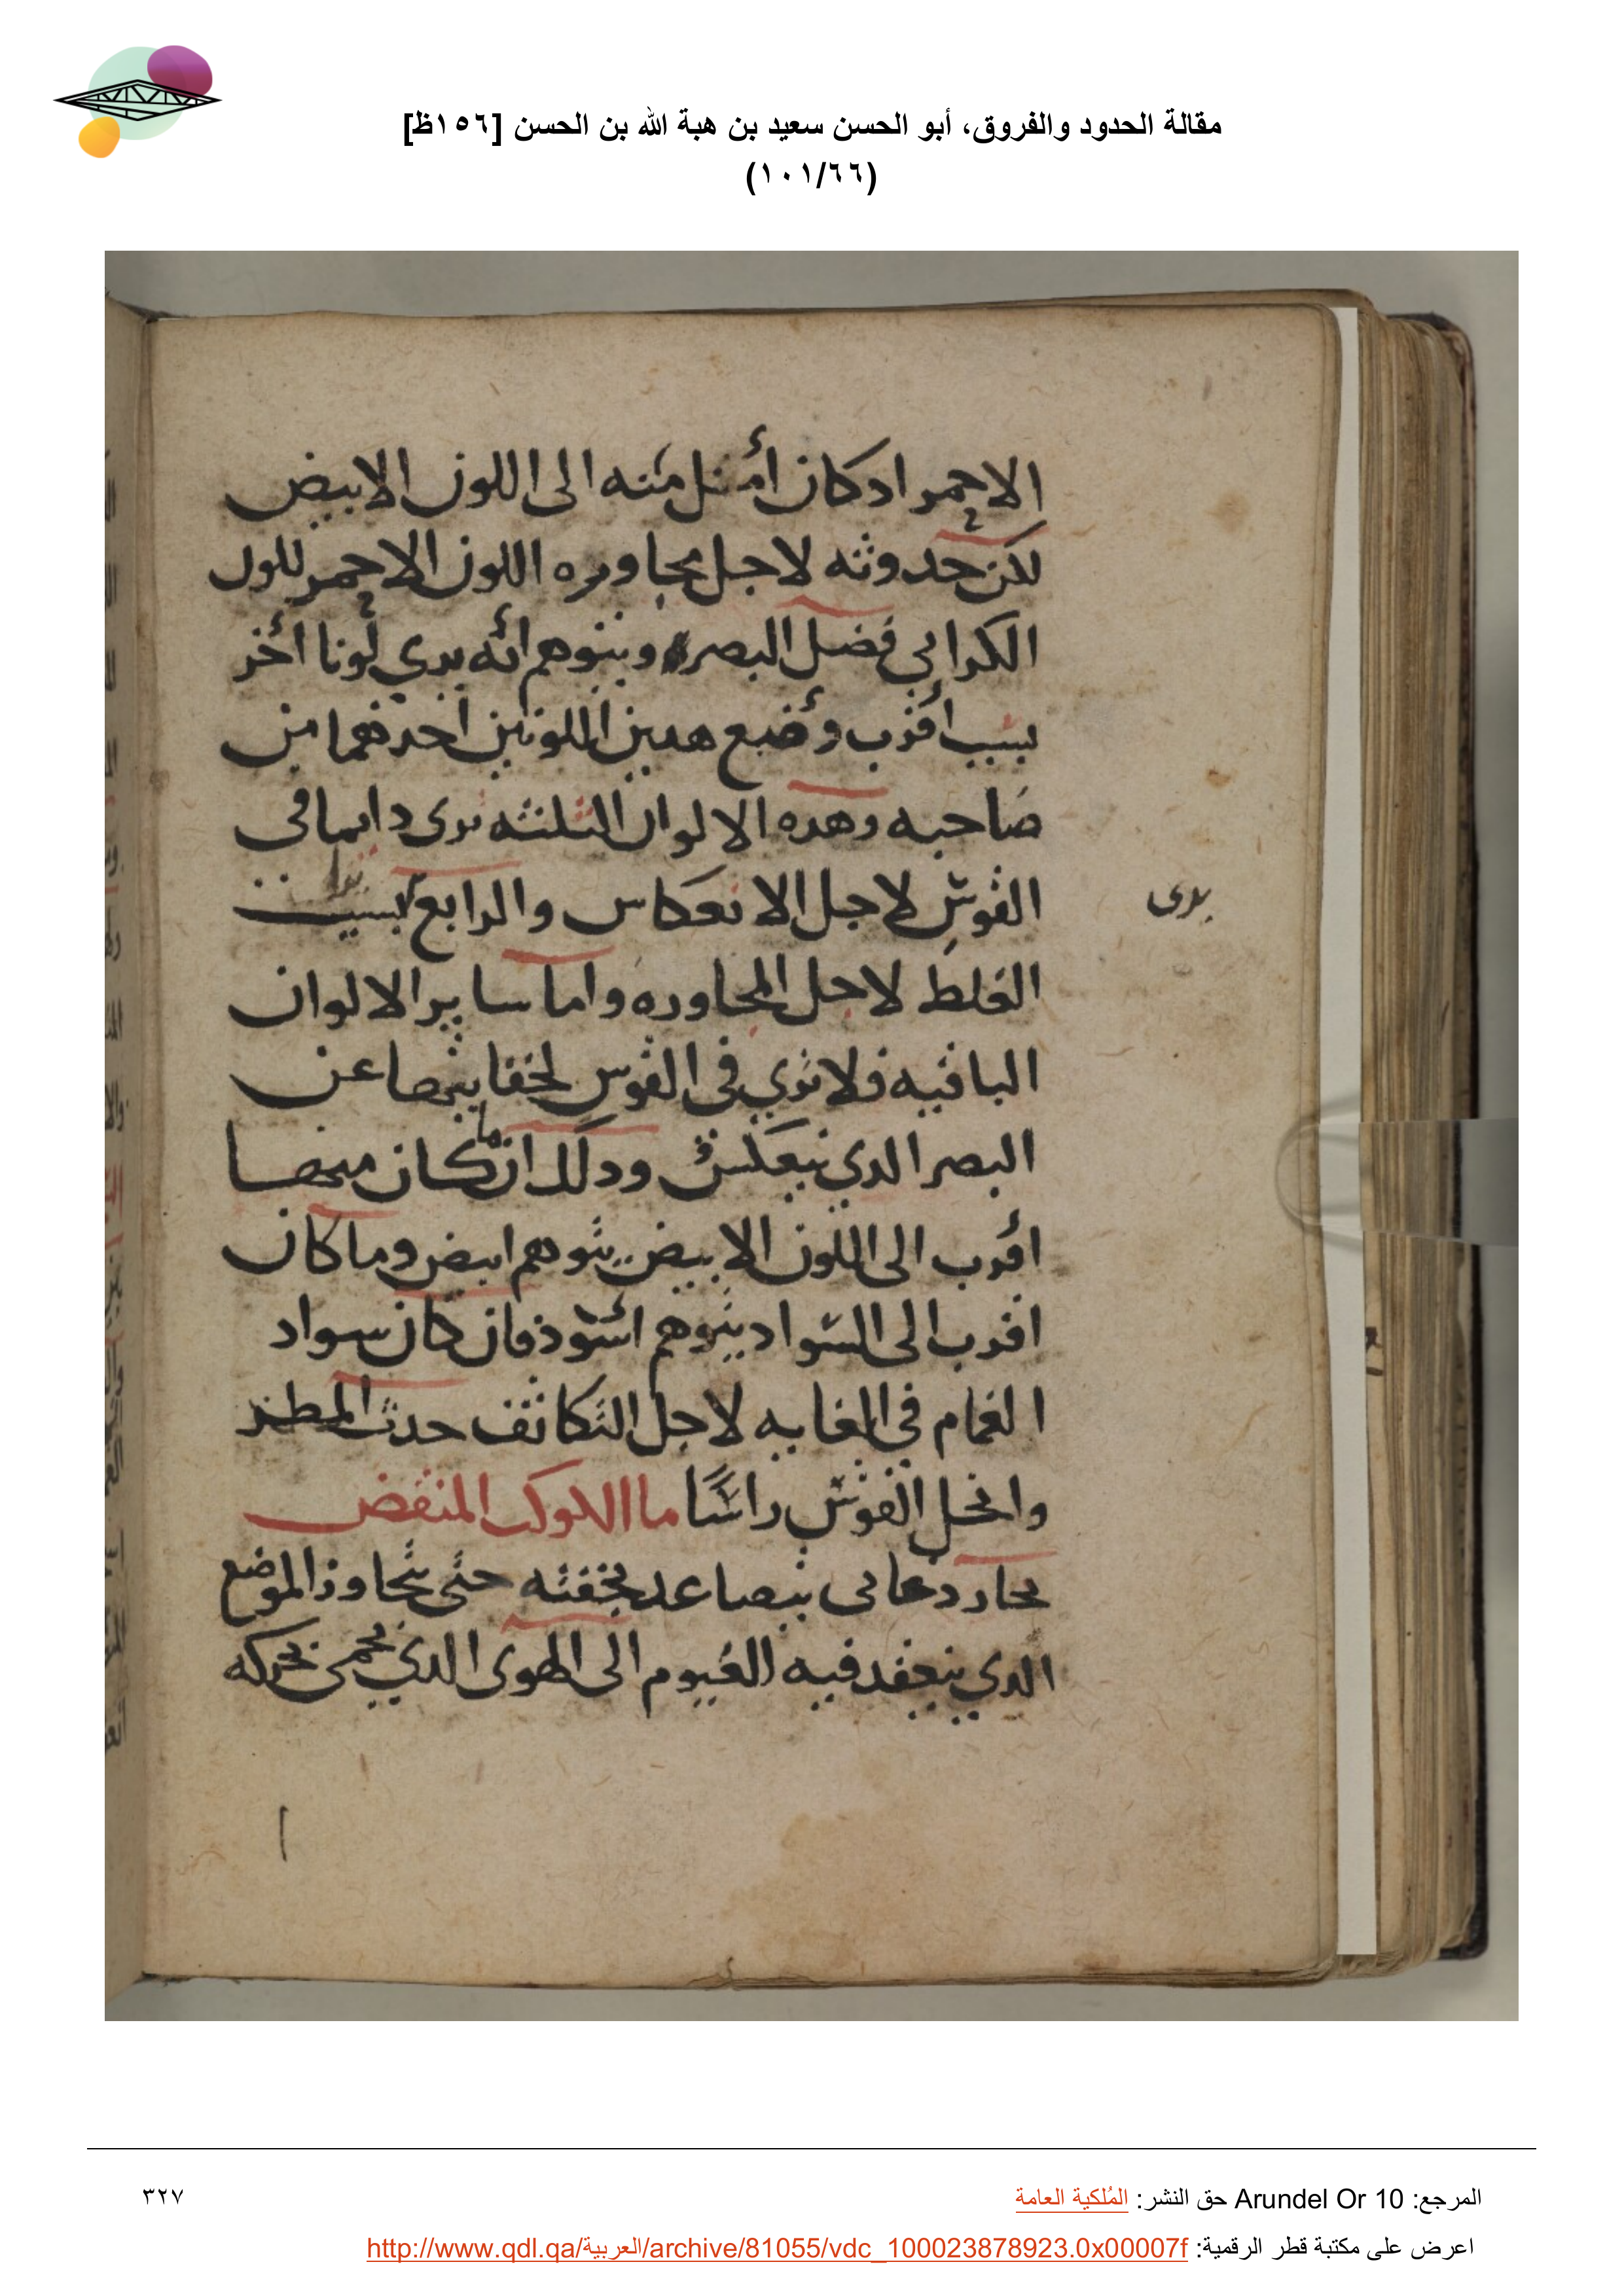 مقالة الحدود والفروق، أبو الحسن سعيد بن هبة الله بن الحسن [١٥٦ظ]
(١٠١/٦٦)
الاحمر اد كان أميل منه الى اللون الابيض
لكن حدوثه لاجل مجاوره اللون الاحمر للون
الكراثي فضل البصر ويتوهم أنه يري لونا أخر
بسبب أقرب وضع هدين اللونين احدهما من
صاحبه وهده الالوان الثلثه ترى دايما في
القوس لاجل الانعكاس والرابع بسبب
يرى
الغلط لاجل المجاوره واما ساير الالوان
الباقيه فلا تري في القوس لخفايها عن
البصر الدي ينعكس ودلك ان ما كان منها
اقرب الى اللون الابيض يتوهم ابيض وما كان
اقرب الى السواد يتوهم اسود فان كان سواد
الغمام في الغايه لاجل التكاثف حدث المطر
وانحل القوس راسًا ما الكوكب المنقض
بخار دخاني يتصاعد بخفته حتى يتجاوز الموضع
الدي ينعقد فيه الغيوم الى الهوى الدي يحمى بحركه
المرجع: Arundel Or 10 حق النشر: المُلكية العامة
٣٢٧
اعرض على مكتبة قطر الرقمية: http://www.qdl.qa/العربية/archive/81055/vdc_100023878923.0x00007f